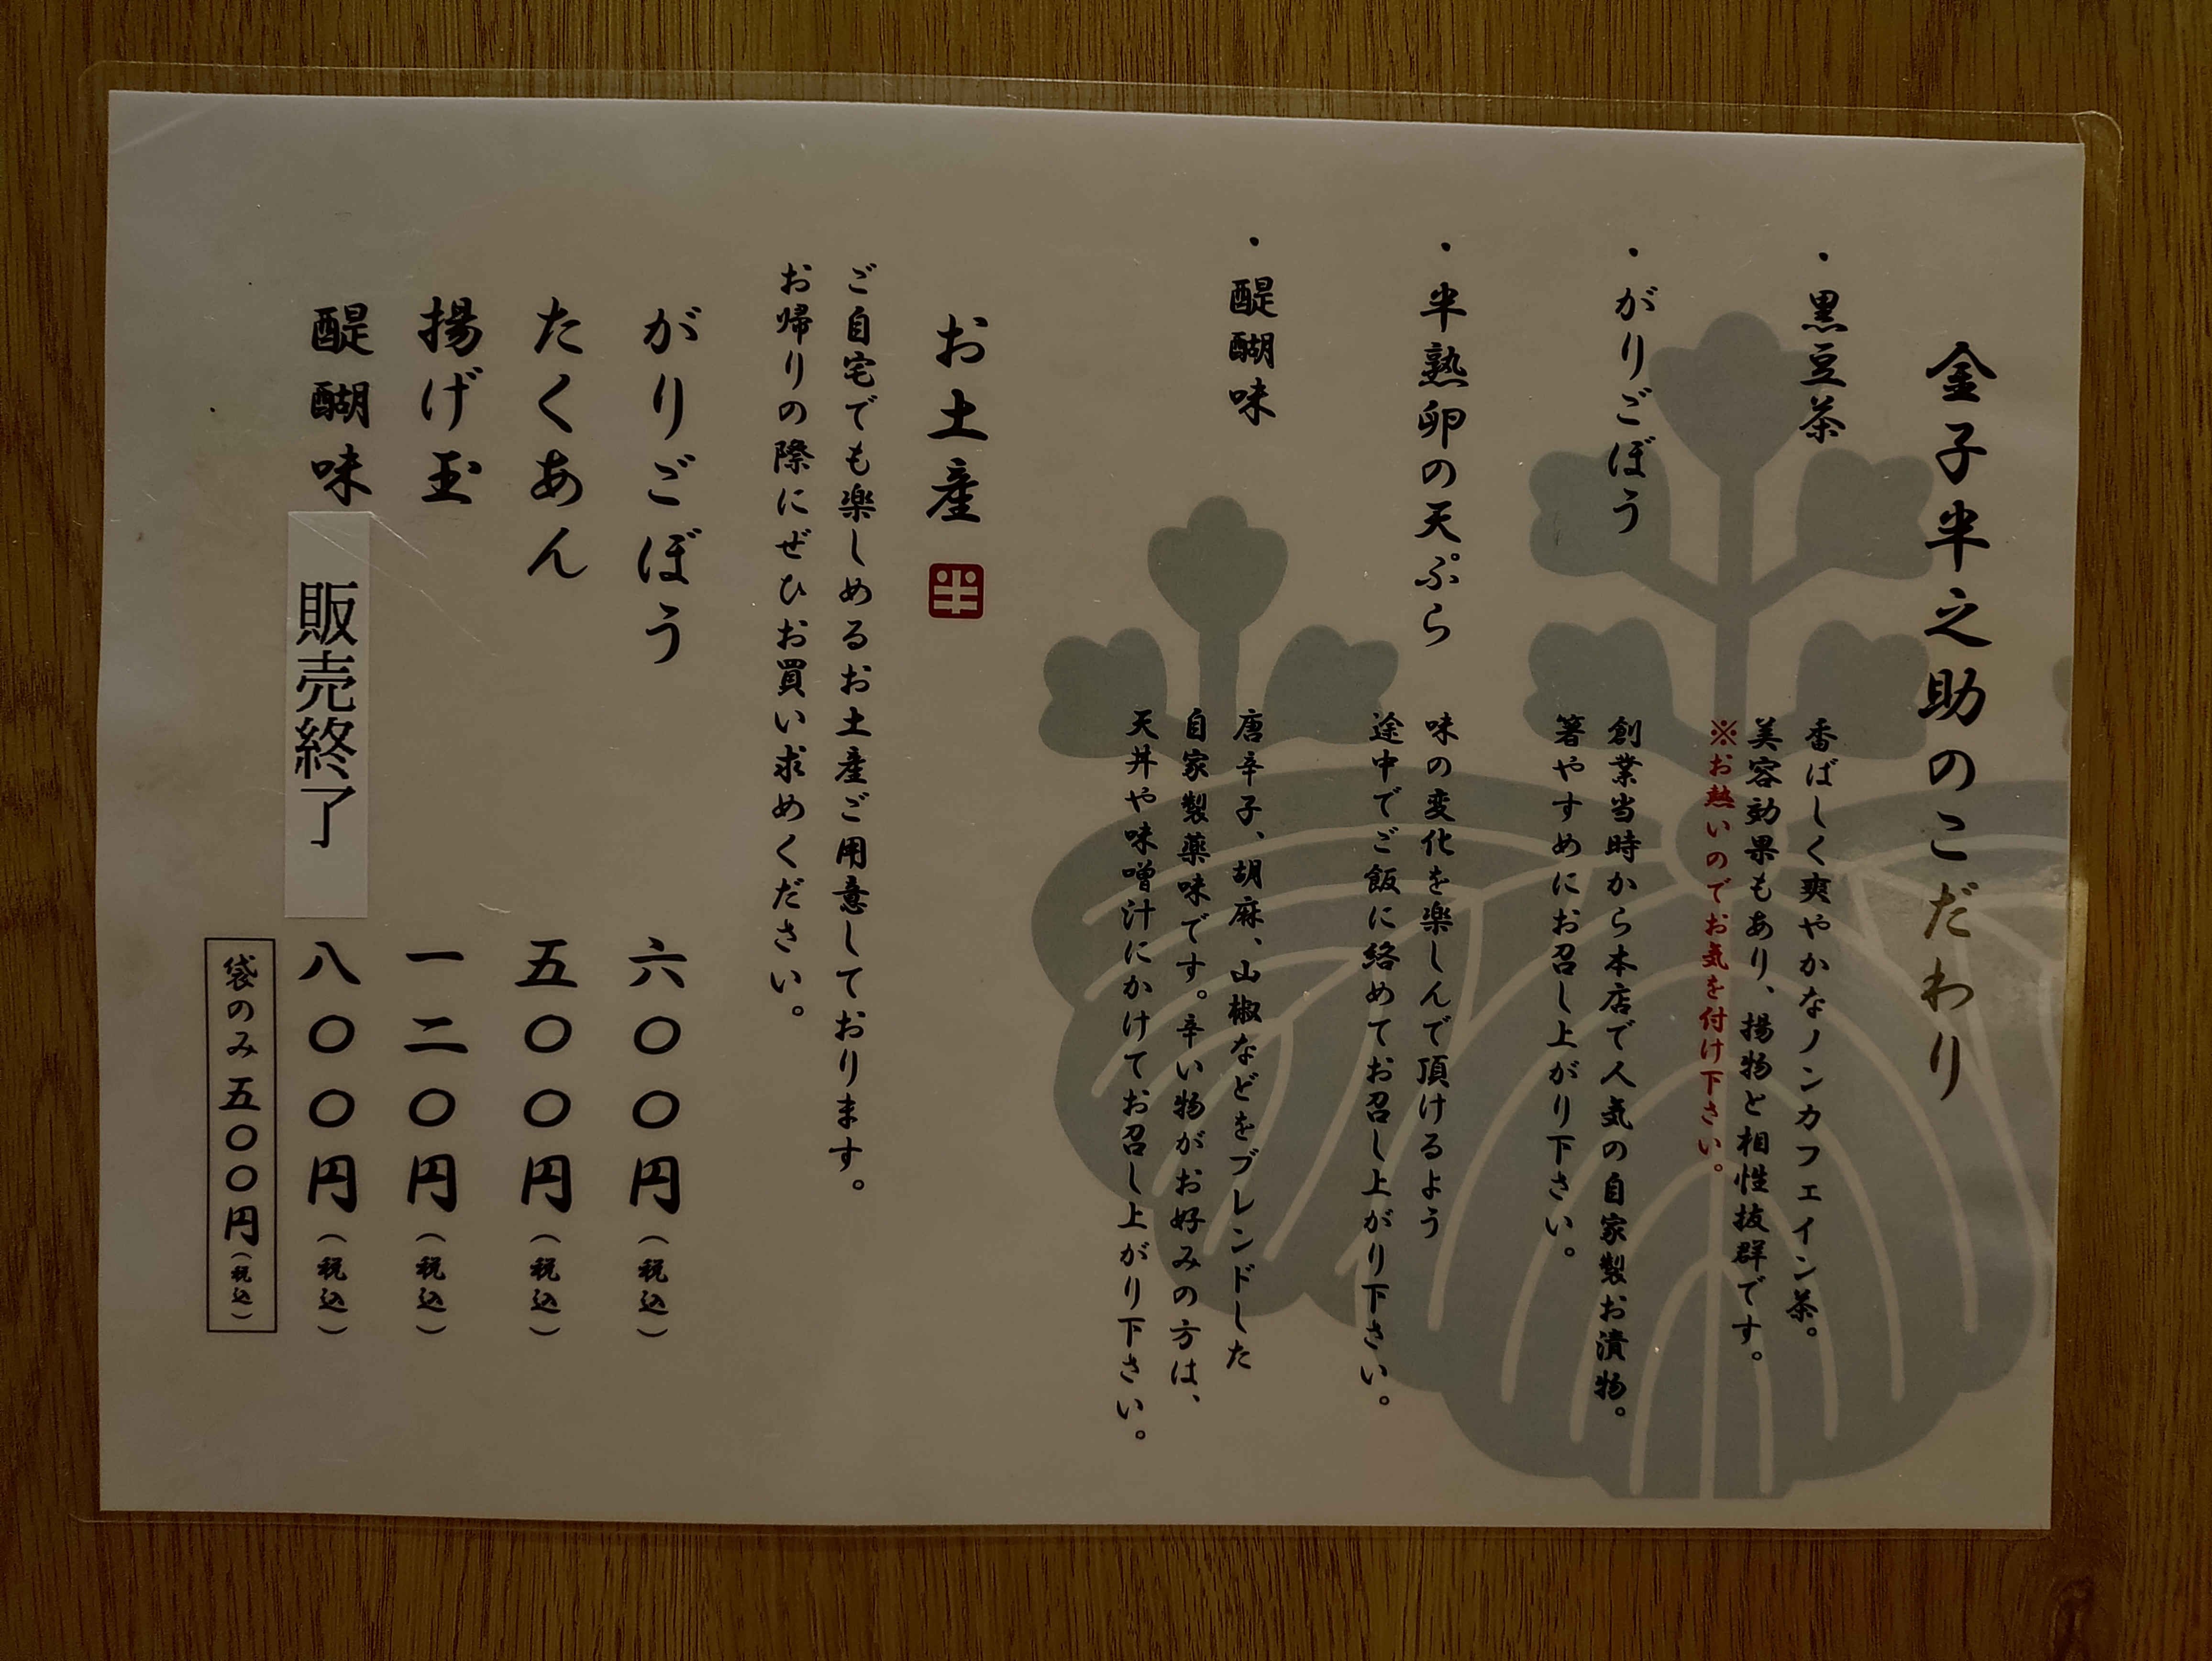 金子半之助のこだわり
・黒豆茶
香ばしく爽やかなノンカフェイン茶。
美容効果もあり、揚物と相性抜群です。
※お熱いのでお気を付け下さい。
・がりごぼう
創業当時から本店で人気の自家製お漬物。
箸やすめにお召し上がり下さい。
・半熟卵の天ぷら
味の変化を楽しんで頂けるよう
途中でご飯に絡めてお召し上がり下さい。
・醍醐味
唐辛子、胡麻、山椒などをブレンドした
自家製薬味です。辛い物がお好みの方は、
天丼や味噌汁にかけてお召し上がり下さい。
お土産 半
ご自宅でも楽しめるお土産ご用意しております。
お帰りの際にぜひお買い求めください。
がりごぼう 六〇〇円(税込)
たくあん 五〇〇円(税込)
揚げ玉 一二〇円(税込)
醍醐味 販売終了 八〇〇円(税込)
袋のみ 五〇〇円(税込)